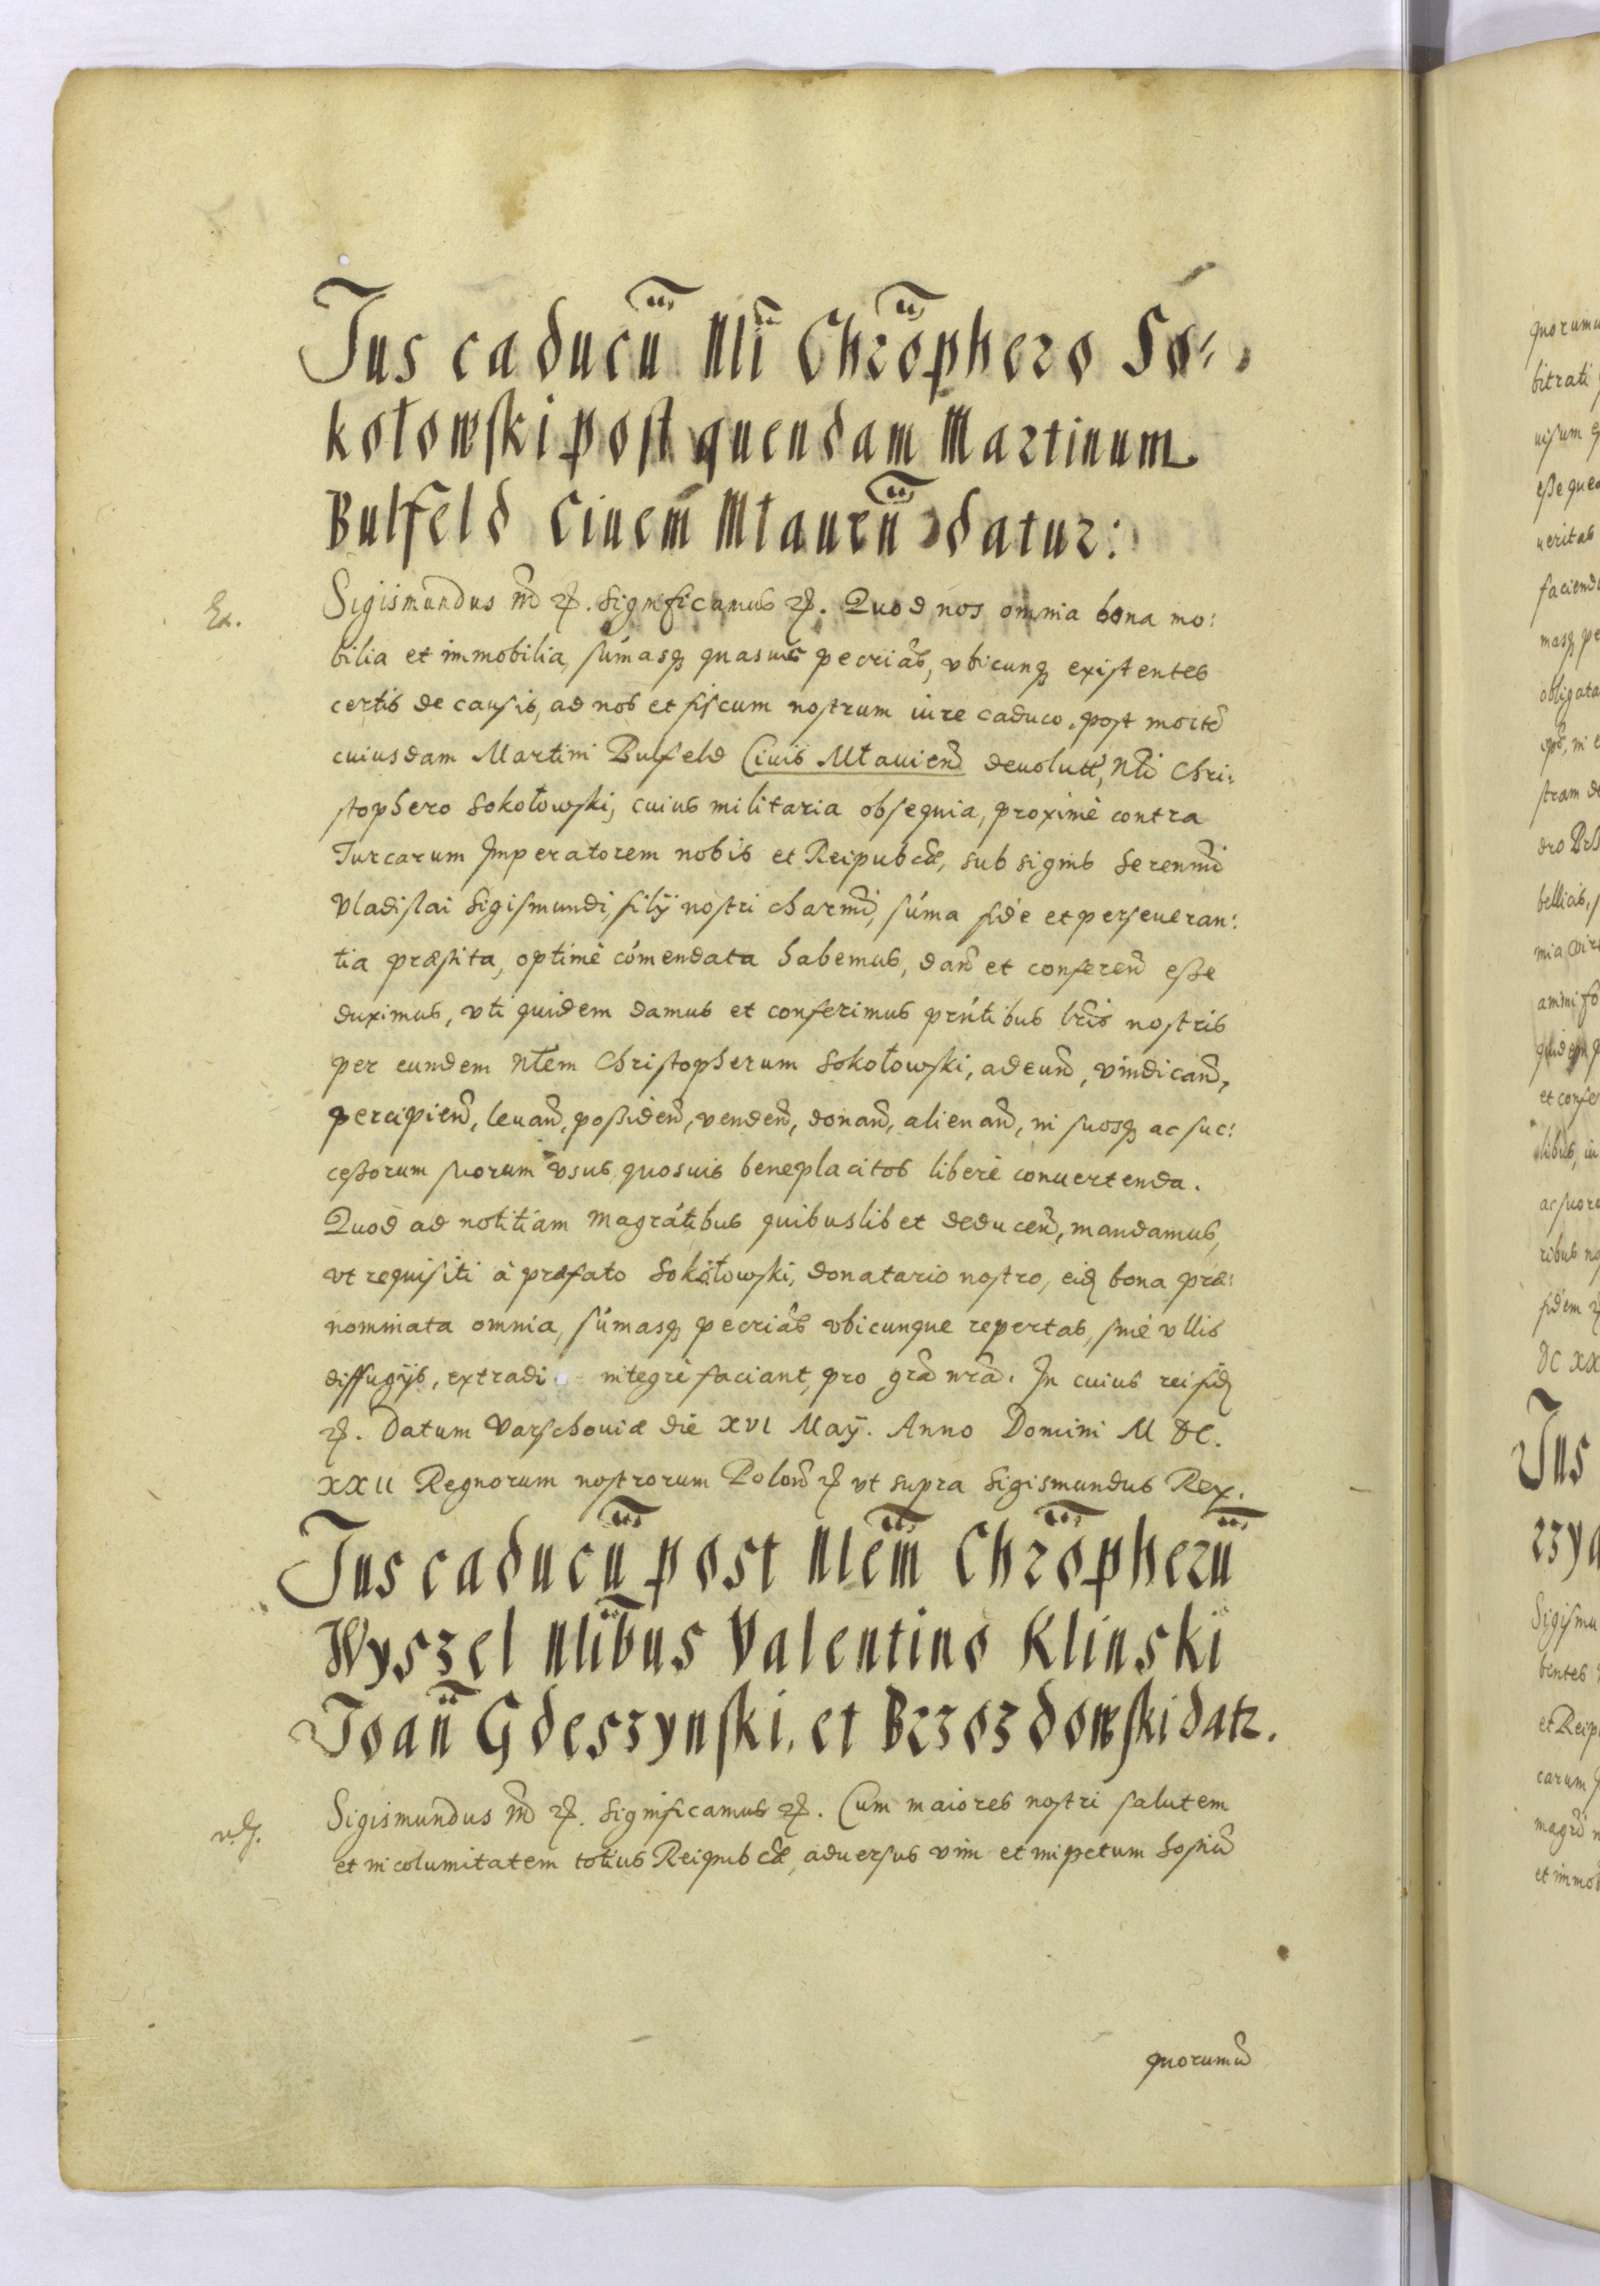 Jus caducũ Nli Chrõphero So=
kołowski post quendam Martinum
Bulfeld Ciuem Mtauẽn datur:
Ex. Sigismundus &c. Significamus &c. Quod nos omnia bona mo:
bilia et immobilia, sũmasq quasuis pecriãs, vbicunq existentes
certis de causis, ad nos et fiscum nostrum iure caduco, post mortẽ
cuiusdam Martini Bulfeld Ciuis Mtauieñ deuolut, Nli Chri:
stophero Sokołowski, cuius militaria obsequia, proximè contra
Turcarum Imperatorem nobis et Reipubcæ, sub signis Serenmi
Vladislai Sigismundi, filij nostri charmi, sũma fide et perseueran:
tia præstita, optimè cõmendata habemus, dañ et confereñ eße
duximus, vti quidem damus et conferimus prñtibus lris nostris
per eundem Nlem Christopherum Sokołowski, adeuñ, vindicañ,
percipieñ, leuañ, poßideñ, vendeñ, donañ, alienañ, in suosq ac suc:
ceßorum suorum vsus quosuis beneplacitos liberè conuertenda.
Quod ad notitiam magrãtibus quibuslibet deduceñ, mandamus,
vt requisiti à præfato Sokołowski, donatario nostro, eid bona præ:
nominata omnia, sũmasq pecriãs vbicunque repertas, sine vllis
diffugijs, extradi integrè faciant, pro grã nrã. In cuius rei fid
&c. Datum Varschouiæ die XVI Maij. Anno Domini M DC.
XXII Regnorum nostrorum Poloñ &c vt supra Sigismundus Rex.
Jus caducũ post Nlem Chrõpherũ
Wyszel Nlibus Valentino Klinski
Joañ Gdeszynski, et Brzozdowski datr.
Sigismundus &c. Significamus &c. Cum maiores nostri salutem
et incolumitatem totius Reipubcæ, aduersus vim et impetum hostiũ
quorumũ